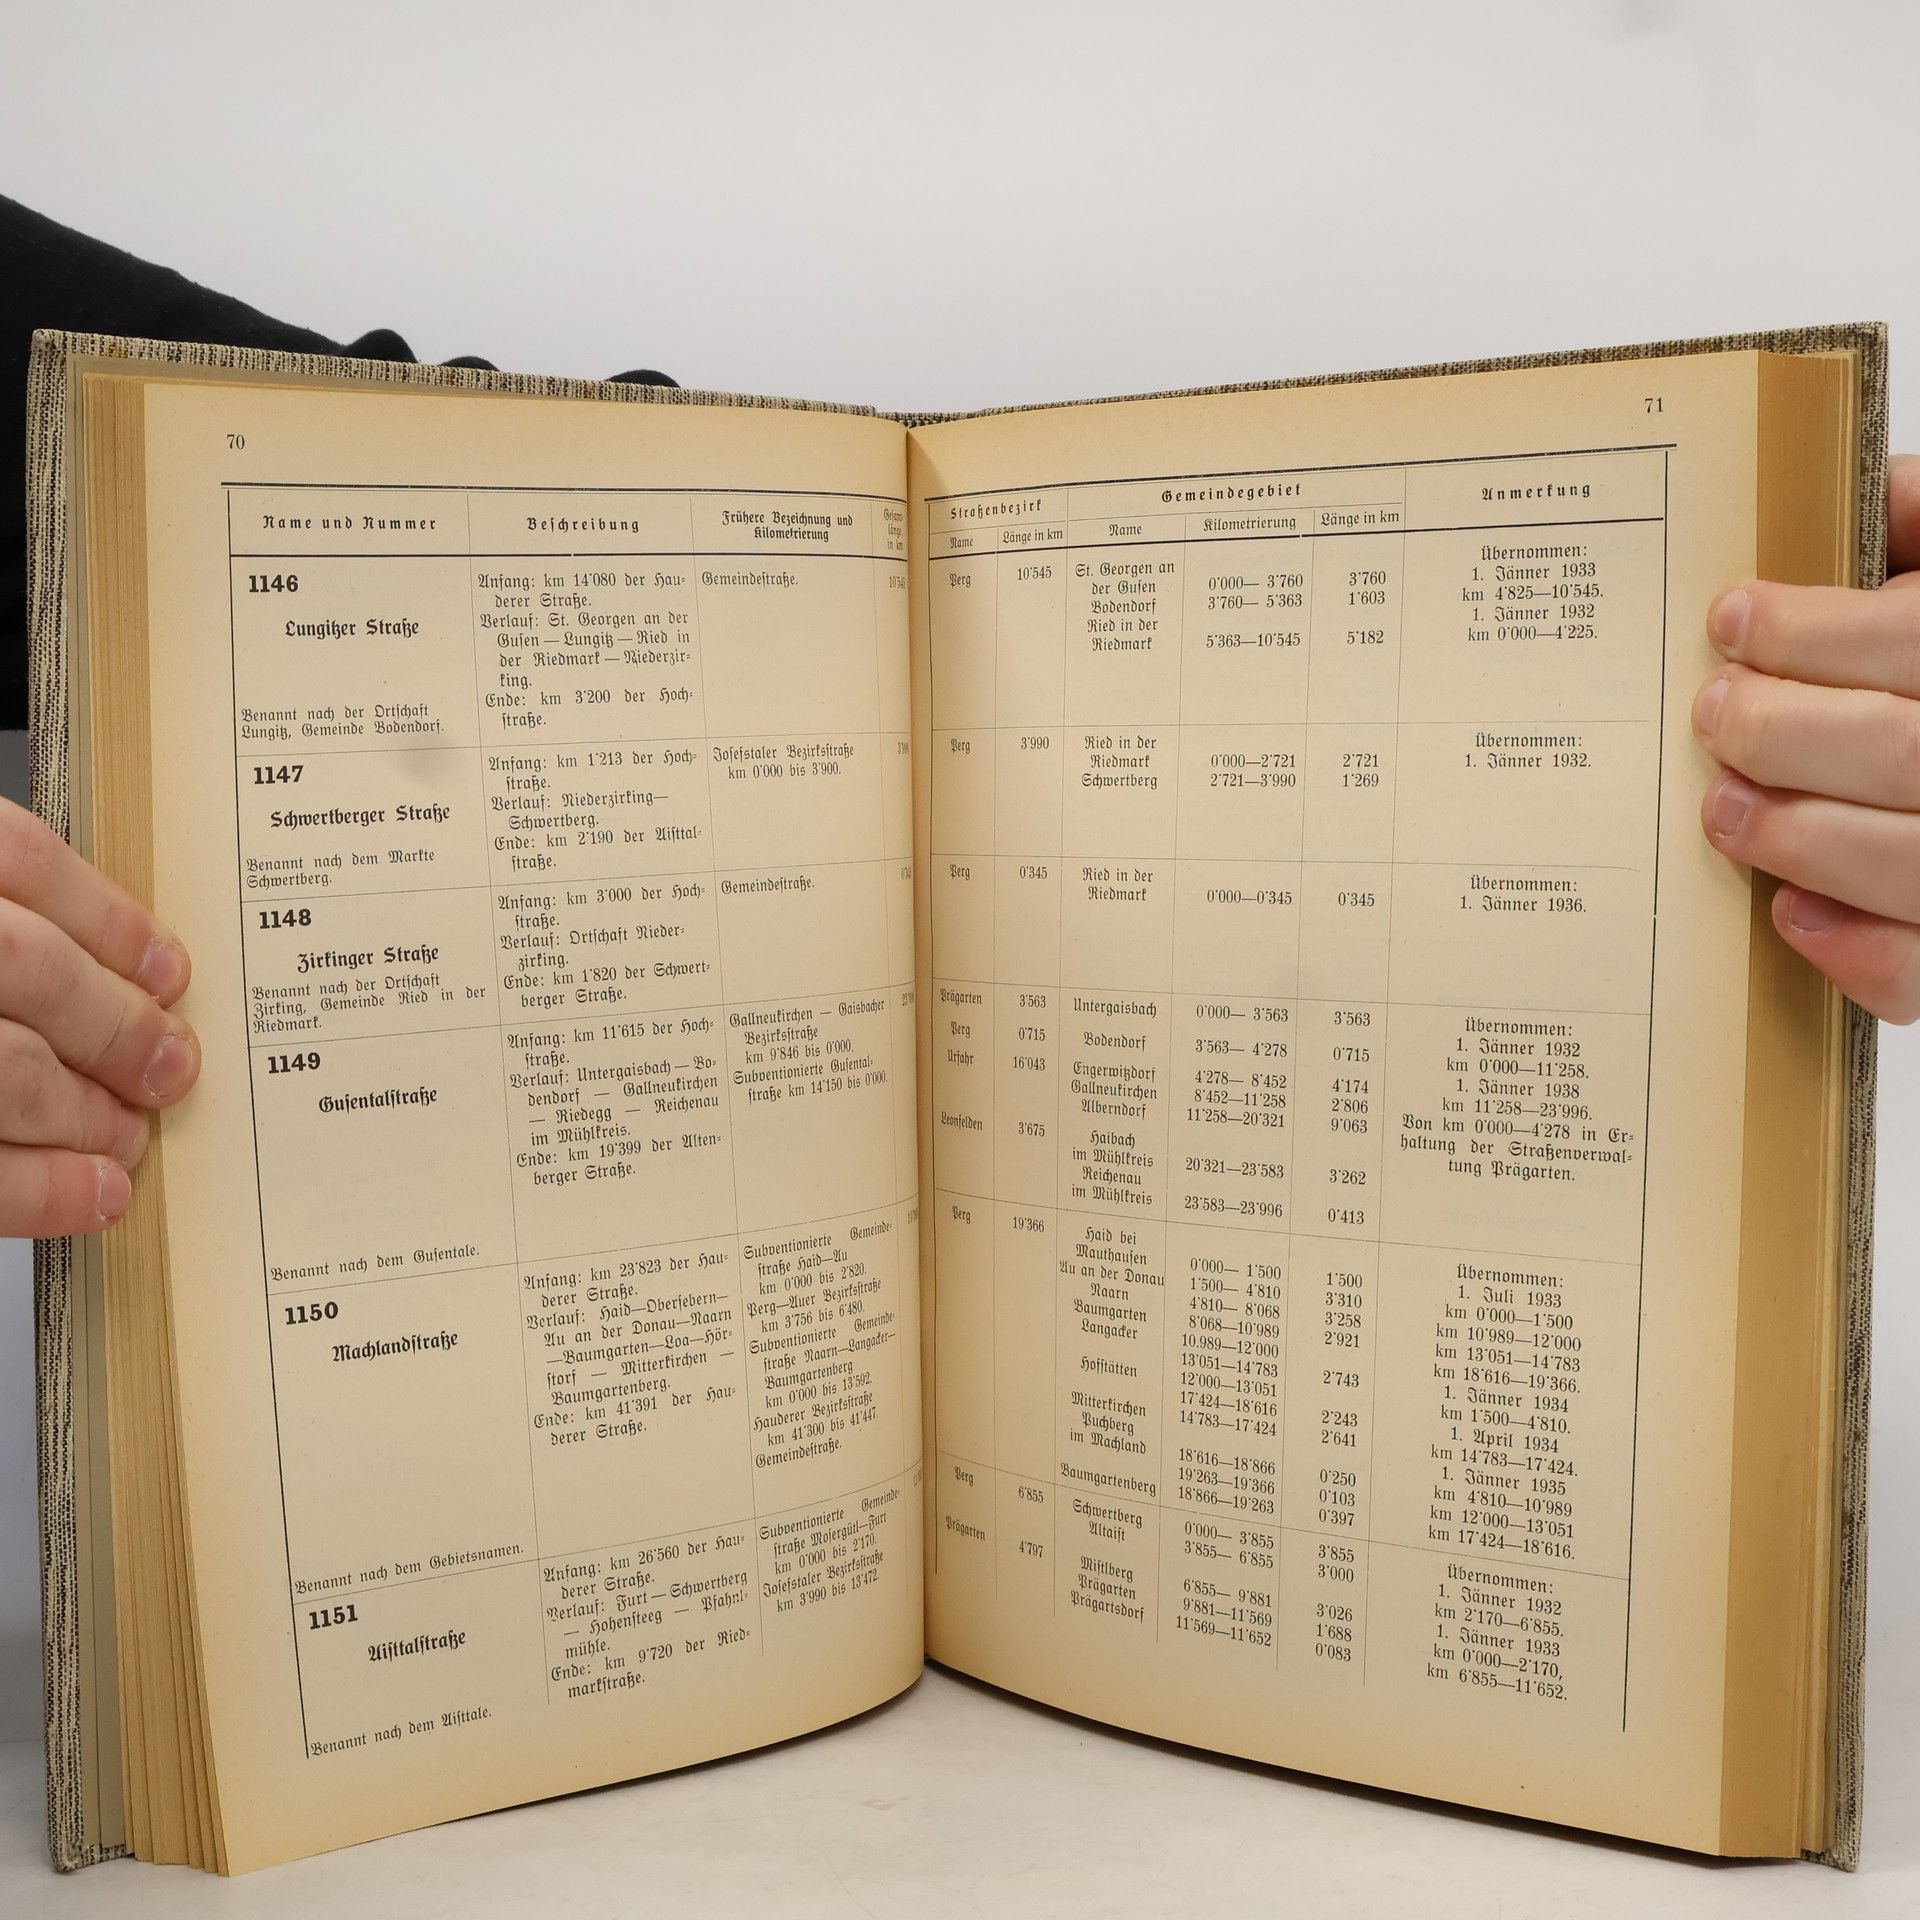 70
Name und Nummer
Beschreibung
Frühere Bezeichnung und
Kilometrierung
Gesamt
länge
in km
1146
Lungitzer Straße
Benannt nach der Ortschaft
Lungitz, Gemeinde Bodendorf.
Anfang: km 14˙080 der Hau-
derer Straße.
Verlauf: St. Georgen an der
Gusen — Lungitz — Ried in
der Riedmark — Niederzir-
king.
Ende: km 3˙200 der Hoch-
straße.
Gemeindestraße.
10˙545
1147
Schwertberger Straße
Benannt nach dem Markte
Schwertberg.
Anfang: km 1˙213 der Hoch-
straße.
Verlauf: Niederzirking—
Schwertberg.
Ende: km 2˙190 der Aisttal-
straße.
Josefstaler Bezirksstraße
km 0˙000 bis 3˙900.
1148
Zirkinger Straße
Benannt nach der Ortschaft
Zirking, Gemeinde Ried in der
Riedmark.
Anfang: km 3˙000 der Hoch-
straße.
Verlauf: Ortschaft Nieder-
zirking.
Ende: km 1˙820 der Schwert-
berger Straße.
Gemeindestraße.
1149
Gusentalstraße
Benannt nach dem Gusentale.
Anfang: km 11˙615 der Hoch-
straße.
Verlauf: Untergaisbach — Bo-
dendorf — Gallneukirchen
— Riedegg — Reichenau
im Mühlkreis.
Ende: km 19˙399 der Alten-
berger Straße.
Gallneukirchen — Gaisbacher
Bezirksstraße
km 9˙846 bis 0˙000.
Subventionierte Gusental-
straße km 14˙150 bis 0˙000.
1150
Machlandstraße
Benannt nach dem Gebietsnamen.
Anfang: km 23˙823 der Hau-
derer Straße.
Verlauf: Haid—Obersebern—
Au an der Donau—Naarn
—Baumgarten—Loa—Hör-
storf — Mitterkirchen —
Baumgartenberg.
Ende: km 41˙391 der Hau-
derer Straße.
Subventionierte Gemeinde-
straße Haid—Au
km 0˙000 bis 2˙820.
Perg—Auer Bezirksstraße
km 3˙756 bis 6˙480.
Subventionierte Gemeinde-
straße Naarn—Langacker—
Baumgartenberg
km 0˙000 bis 13˙592.
Hauderer Bezirksstraße
km 41˙300 bis 41˙447.
Gemeindestraße.
1151
Aisttalstraße
Benannt nach dem Aisttale.
Anfang: km 26˙560 der Hau-
derer Straße.
Verlauf: Furt — Schwertberg
— Hohensteeg — Pfahnl-
mühle.
Ende: km 9˙720 der Ried-
markstraße.
Subventionierte Gemeinde-
straße Mosergütl—Furt
km 0˙000 bis 2˙170.
Josefstaler Bezirksstraße
km 3˙990 bis 13˙472.
71
Straßenbezirk
Gemeindegebiet
Anmerkung
Name
Länge in km
Name
Kilometrierung
Länge in km
Perg 10˙545 St. Georgen an
der Gusen 0˙000— 3˙760 3˙760
Bodendorf 3˙760— 5˙363 1˙603
Ried in der
Riedmark 5˙363—10˙545 5˙182
Übernommen:
1. Jänner 1933
km 4˙825—10˙545.
1. Jänner 1932
km 0˙000—4˙225.
Perg 3˙990 Ried in der
Riedmark 0˙000—2˙721 2˙721
Schwertberg 2˙721—3˙990 1˙269
Übernommen:
1. Jänner 1932.
Perg 0˙345 Ried in der
Riedmark 0˙000—0˙345 0˙345
Übernommen:
1. Jänner 1936.
Prägarten 3˙563 Untergaisbach 0˙000— 3˙563 3˙563
Perg 0˙715 Bodendorf 3˙563— 4˙278 0˙715
Urfahr 16˙043 Engerwitzdorf 4˙278— 8˙452 4˙174
Gallneukirchen 8˙452—11˙258 2˙806
Alberndorf 11˙258—20˙321 9˙063
Leonfelden 3˙675 Haibach
im Mühlkreis 20˙321—23˙583 3˙262
Reichenau
im Mühlkreis 23˙583—23˙996 0˙413
Übernommen:
1. Jänner 1932
km 0˙000—11˙258.
1. Jänner 1938
km 11˙258—23˙996.
Von km 0˙000—4˙278 in Er-
haltung der Straßenverwal-
tung Prägarten.
Perg 19˙366 Haid bei
Mauthausen 0˙000— 1˙500 1˙500
Au an der Donau 1˙500— 4˙810 3˙310
Naarn 4˙810— 8˙068 3˙258
Baumgarten 8˙068—10˙989 2˙921
Langacker 10.989—12˙000
13˙051—14˙783 2˙743
Hofstätten 12˙000—13˙051
17˙424—18˙616 2˙243
Mitterkirchen 14˙783—17˙424 2˙641
Puchberg
im Machland 18˙616—18˙866 0˙250
19˙263—19˙366 0˙103
Baumgartenberg 18˙866—19˙263 0˙397
Übernommen:
1. Juli 1933
km 0˙000—1˙500
km 10˙989—12˙000
km 13˙051—14˙783
km 18˙616—19˙366.
1. Jänner 1934
km 1˙500—4˙810.
1. April 1934
km 14˙783—17˙424.
1. Jänner 1935
km 4˙810—10˙989
km 12˙000—13˙051
km 17˙424—18˙616.
Perg 6˙855 Schwertberg 0˙000— 3˙855 3˙855
Altaist 3˙855— 6˙855 3˙000
Prägarten 4˙797 Mistlberg 6˙855— 9˙881 3˙026
Prägarten 9˙881—11˙569 1˙688
Prägartsdorf 11˙569—11˙652 0˙083
Übernommen:
1. Jänner 1932
km 2˙170—6˙855.
1. Jänner 1933
km 0˙000—2˙170,
km 6˙855—11˙652.